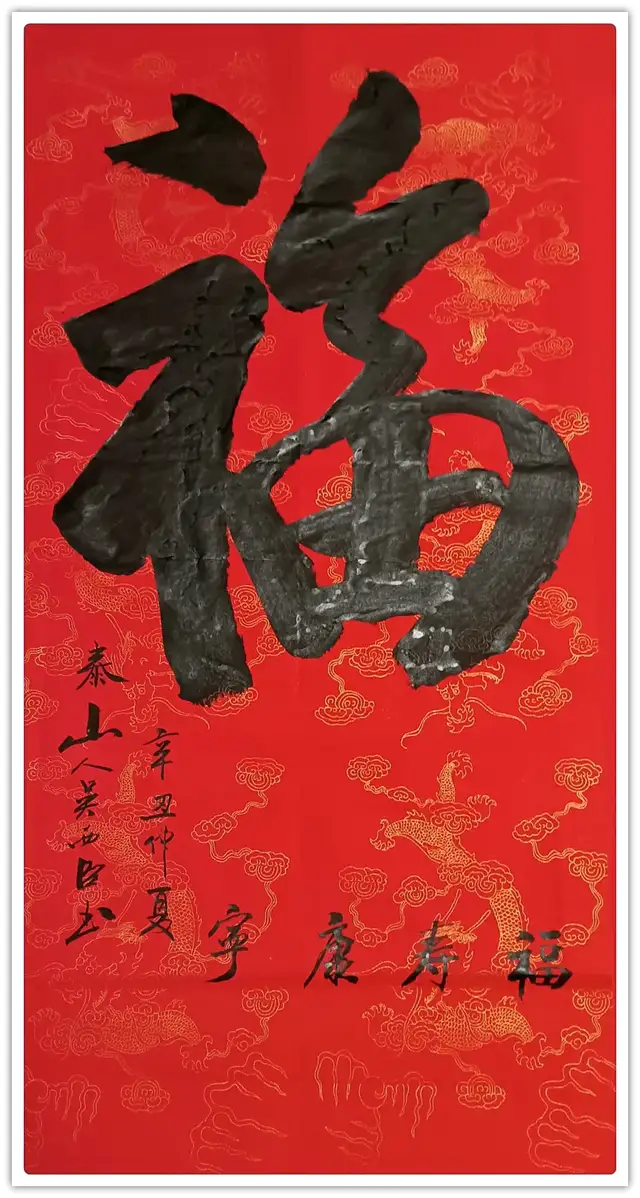 福
福寿康寧
辛丑仲夏
泰山人吴西臣书